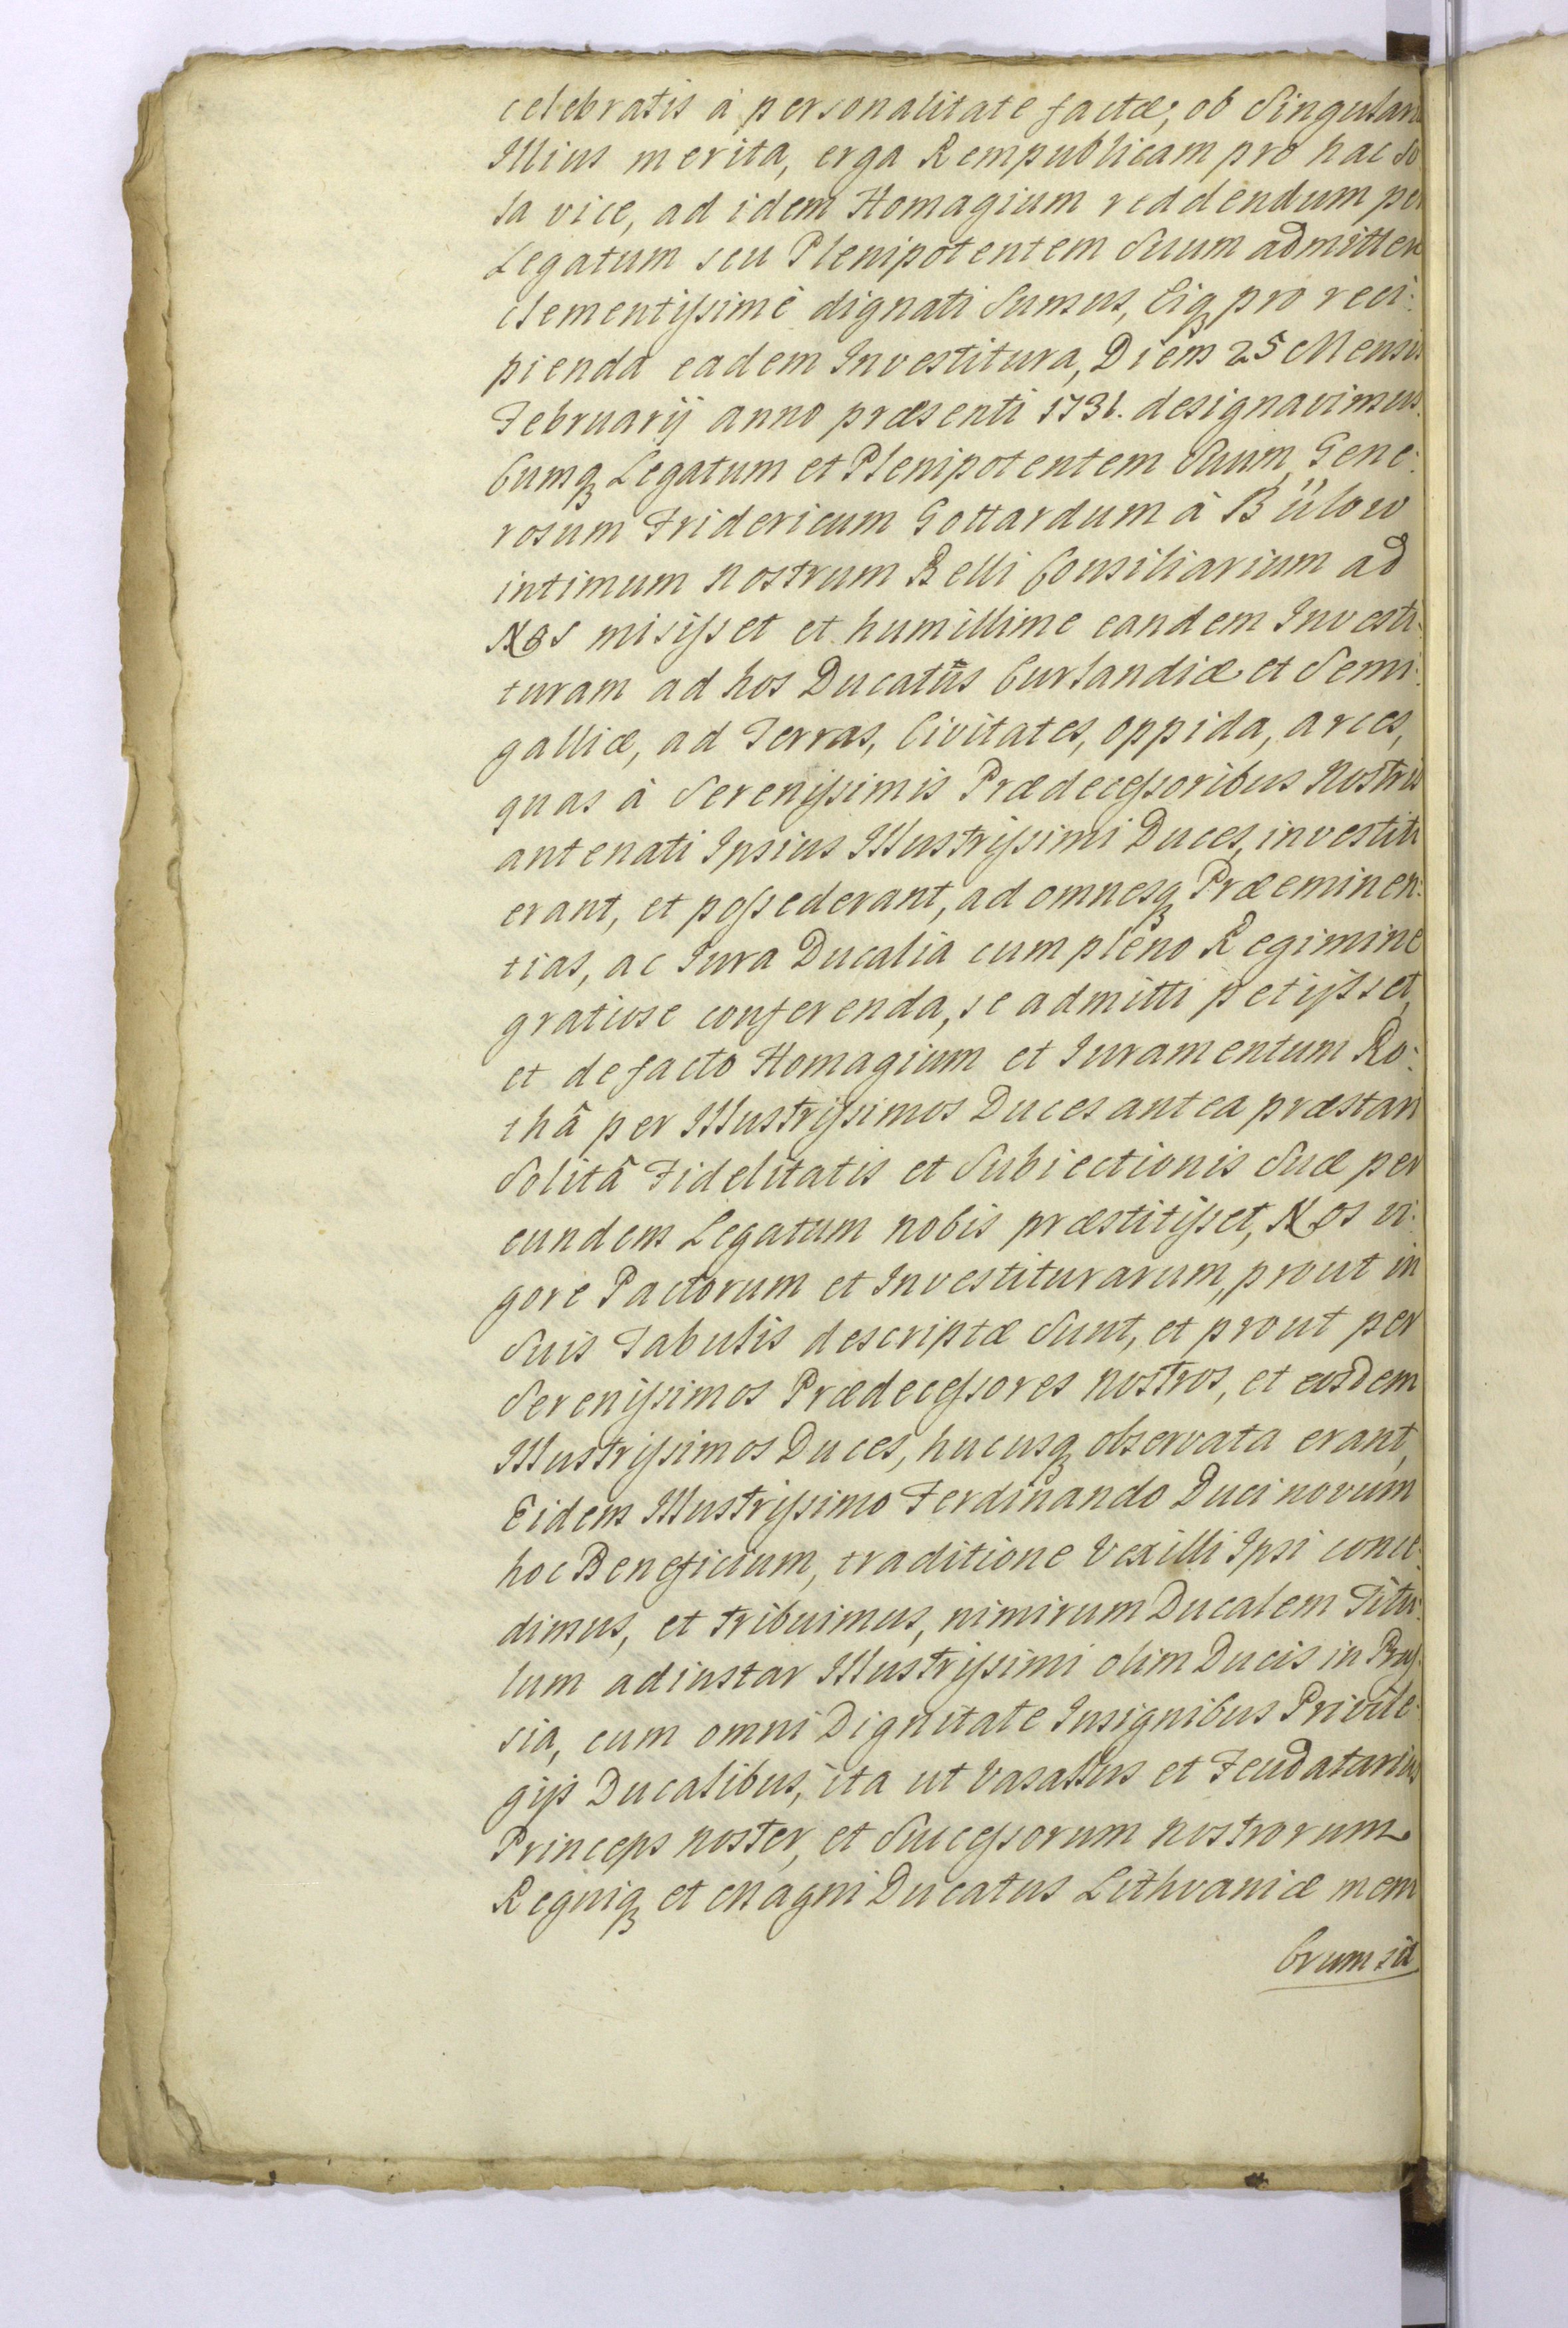 celebratis à personalitate factæ, ob Singulari
Illius merita, erga Rempublicam pro hac so
la vice, ad idem Homagium reddendum per
Legatum seu Plenipotentem Suum admitter
clementissimè dignati Sumus, Eiq₃ pro reci:
pienda eadem Investitura, Diem 25 Mensis
Februarij anno præsenti 1731. designavimus.
Cumq₃ Legatum et Plenipotentem Suum, Gene:
rosum Fridericum Gottardum à Bülow
intimum nostrum Belli Consiliarium ad
Nos misisset et humillime eandem Investi:
turam ad hos Ducatûs Curlandiæ et Semi:
galliæ, ad Terras, Civitates, oppida, arces,
quas à Serenissimis Prædecessoribus Nostris
antenati Ipsius Illustrissimi Duces, investiti
erant, et possederant, ad omnesq₃ Præeminen:
tias, ac Iura Ducalia cum pleno Regimine
gratiose conferenda, se admitti petijsset,
et de facto Homagium et Iuramentum Ro:
thâ per Illustrissimos Duces antea præstari
Solitâ Fidelitatis et Subiectionis Suæ per
eundem Legatum nobis præstitisset, Nos vi:
gore Pactorum et Investiturarum, prout in
Suis Tabulis descriptæ Sunt, et prout per
Serenissimos Prædecessores nostros, et eosdem
Illustrissimos Duces, hucusq₃ observata erant,
Eidem Illustrissimo Ferdinando Duci novum
hoc Beneficium, traditione Vexilli Ipsi conce:
dimus, et tribuimus, nimirum Ducalem Titu:
lum ad instar Illustrissimi olim Ducis in Prus:
sia, cum omni Dignitate Insignibus Privile:
gijs Ducalibus, ita ut Vasallus et Feudatarius
Princeps noster, et Successorum nostrorum
Regniq₃ et Magni Ducatus Lithvaniæ mem
brum sit